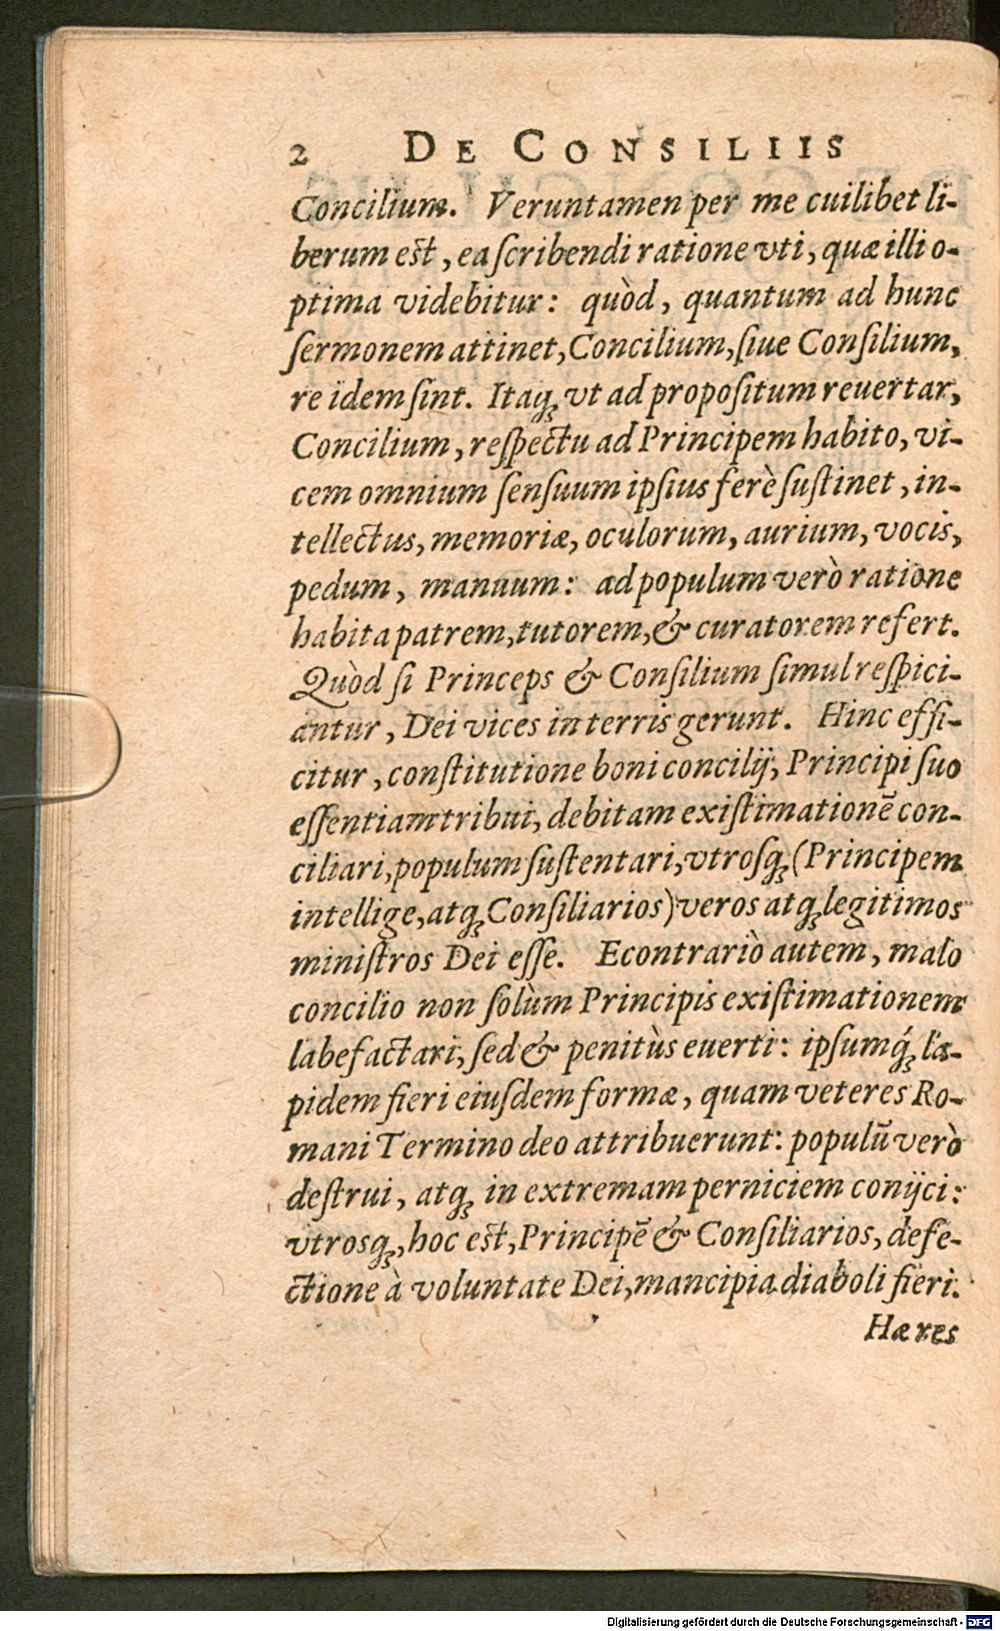 2 DE CONSILIIS
Concilium. Veruntamen per me cuilibet li-
berum est, ea scribendi ratione vti, quæ illi o-
ptima videbitur: quòd, quantum ad hunc
sermonem attinet, Concilium, siue Consilium,
re idem sint. Itaq; vt ad propositum reuertar,
Concilium, respectu ad Principem habito, vi-
cem omnium sensuum ipsius ferè sustinet, in-
tellectus, memoriæ, oculorum, aurium, vocis,
pedum, manuum: ad populum verò ratione
habita patrem, tutorem, & curatorem refert.
Quòd si Princeps & Consilium simul respici-
antur, Dei vices in terris gerunt. Hinc effi-
citur, constitutione boni concilij, Principi suo
essentiam tribui, debitam existimationē con-
ciliari, populum sustentari, vtrosq; (Principem
intellige, atq; Consiliarios) veros atq; legitimos
ministros Dei esse. Econtrariò autem, malo
concilio non solùm Principis existimationem
labefactari, sed & penitùs euerti: ipsumq́; la-
pidem fieri eiusdem formæ, quam veteres Ro-
mani Termino deo attribuerunt: populū verò
destrui, atq; in extremam perniciem conijci:
vtrosq;, hoc est, Principē & Consiliarios, defe-
ctione à voluntate Dei, mancipia diaboli fieri.
Hæres
Digitalisierung gefördert durch die Deutsche Forschungsgemeinschaft - DFG